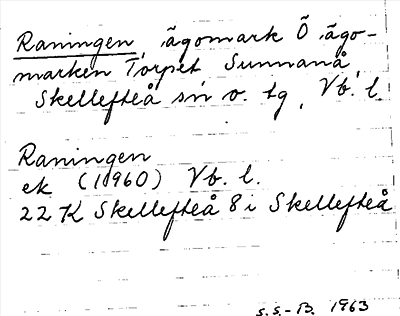 Raningen, ägomark Ö ägo-
marken Torpet Sunnanå,
Skellefteå sn o. tg, Vb. l.
Raningen
ek (1960) Vb. l.
22 K Skellefteå 8 i Skellefteå
S.S.-B. 1963